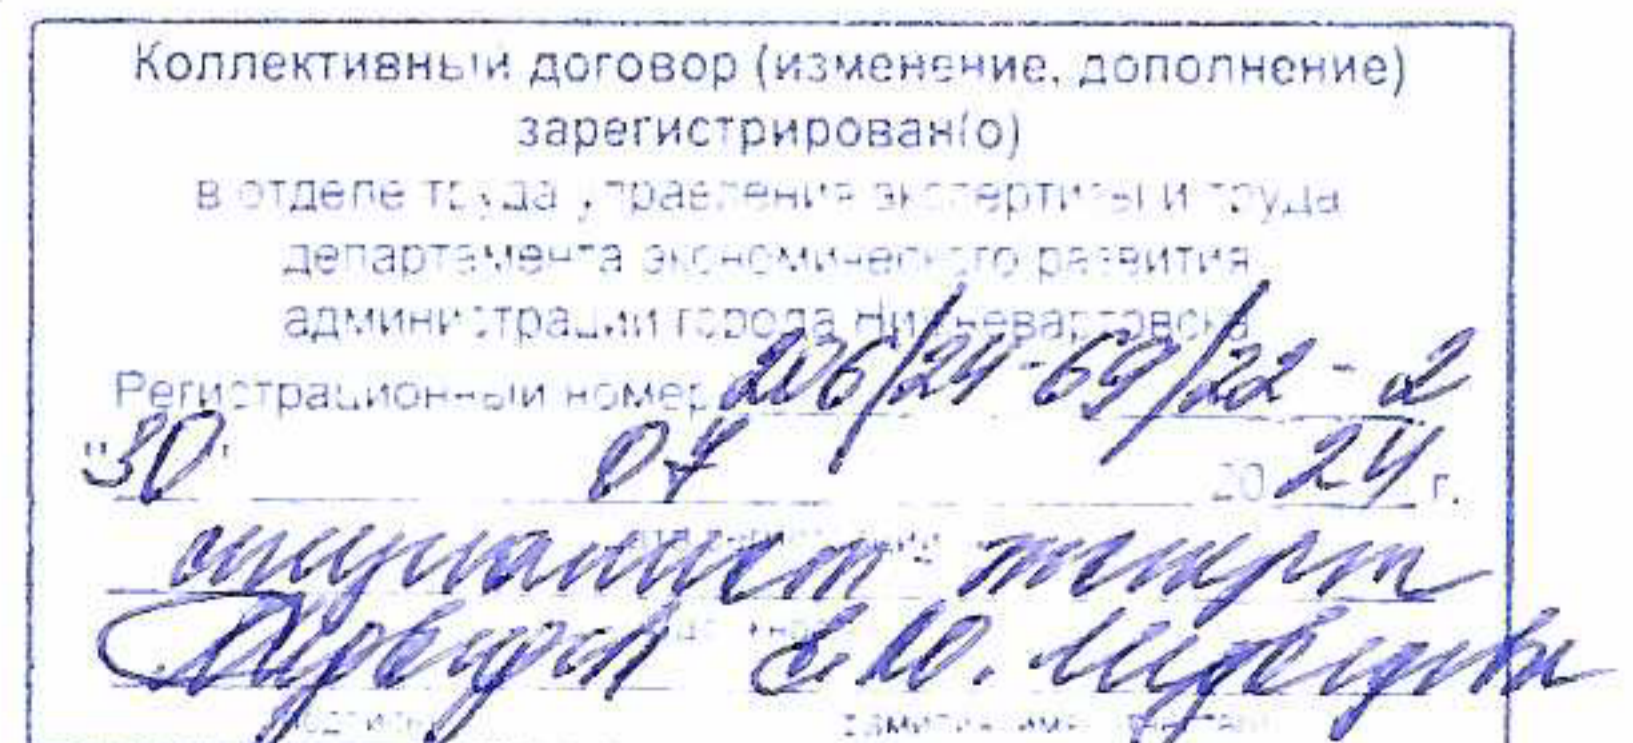 Коллективный договор (изменение, дополнение)
зарегистрирован(о)
в отделе труда управления экспертизы и труда
департамента экономического развития
администрации города Нижневартовска
Регистрационный номер 206/24-69/22-2
"30" 07 2024 г.
специалист эксперт
Е.Ю. Медведева
подпись фамилия, имя, отчество